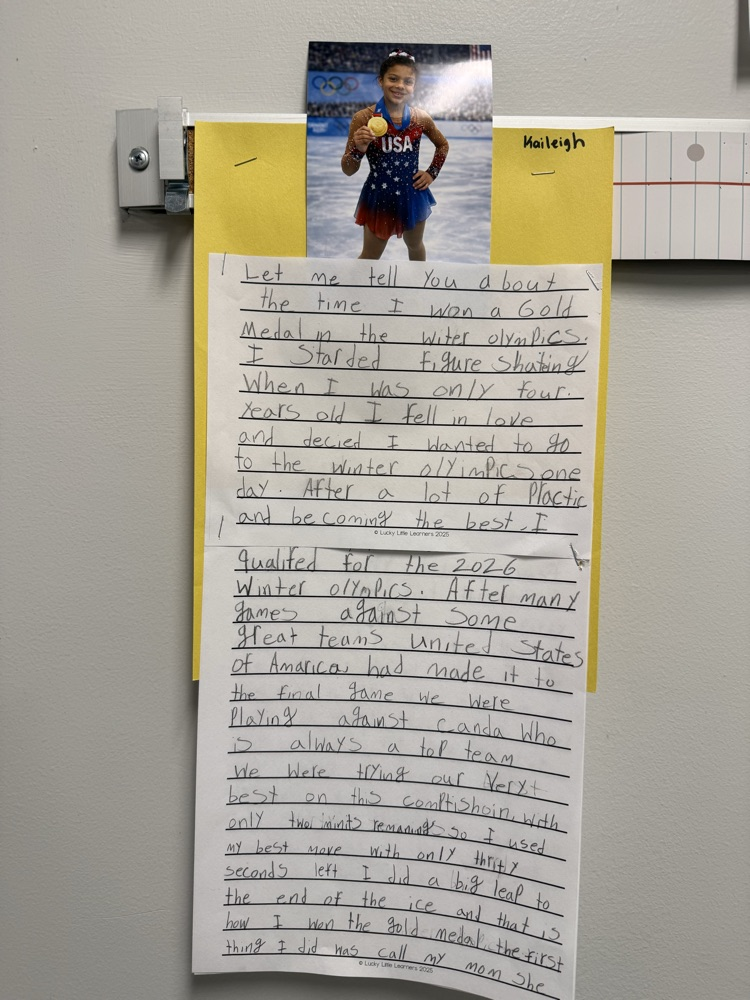 USA
Kaileigh
Let me tell you about
the time I won a Gold
Medal in the witer olympics.
I Starded figure skating
when I was only four.
years old I fell in love
and decied I wanted to go
to the winter olyimpics one
day. After a lot of Plactic
and becoming the best, I
© Lucky Little Learners 2025
qualifed for the 2026
Winter olympics. After many
games against some
great teams united States
of Amarica, had made it to
the final game we were
Playing against canda who
is always a top team
we were trying our Veryt
best on this comptishoin, with
only two mints remanings so I used
my best move with only thrity
seconds left I did a big leap to
the end of the ice and that is
how I won the gold medal. the first
thing I did was call my mom she
© Lucky Little Learners 2025